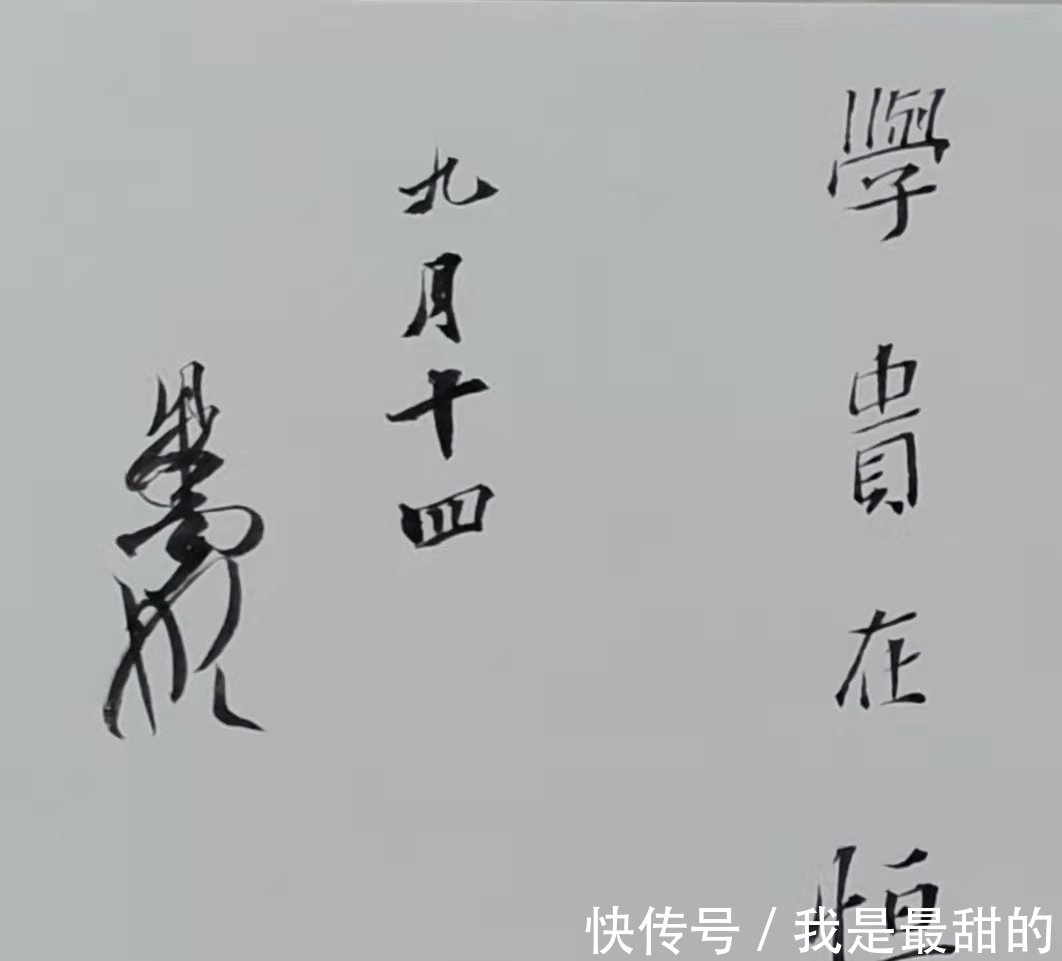 學貴在恒
九月十四
快传号/我是最甜的